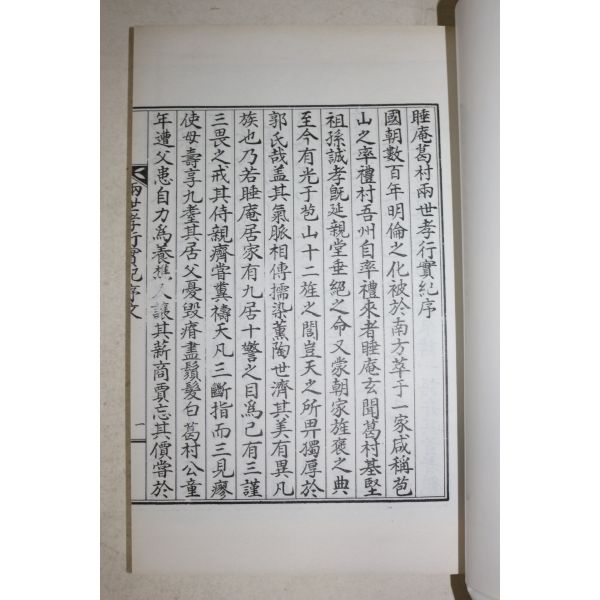 睡庵葛村兩世孝行實紀序
國朝數百年明倫之化被於南方萃于一家咸稱苞
山之率禮村吾州自率禮來者睡庵玄聞葛村基堅
祖孫誠孝旣延親堂垂絕之命又蒙朝家旌褒之典
至今有光于苞山十二旌之閭豈天之所畀獨厚於
郭氏哉盖其氣脈相傳擩染薰陶世濟其美有異凡
族也乃若睡庵居家有九居十警之目爲己有三謹
三畏之戒其侍親癠甞糞禱天凡三斷指而三見瘳
使母壽享九耋其居父憂毁瘠盡鬚髮白葛村公童
年遭父患自力爲養樵人讓其薪商賈忘其價嘗於
兩世孝行實紀序文
一